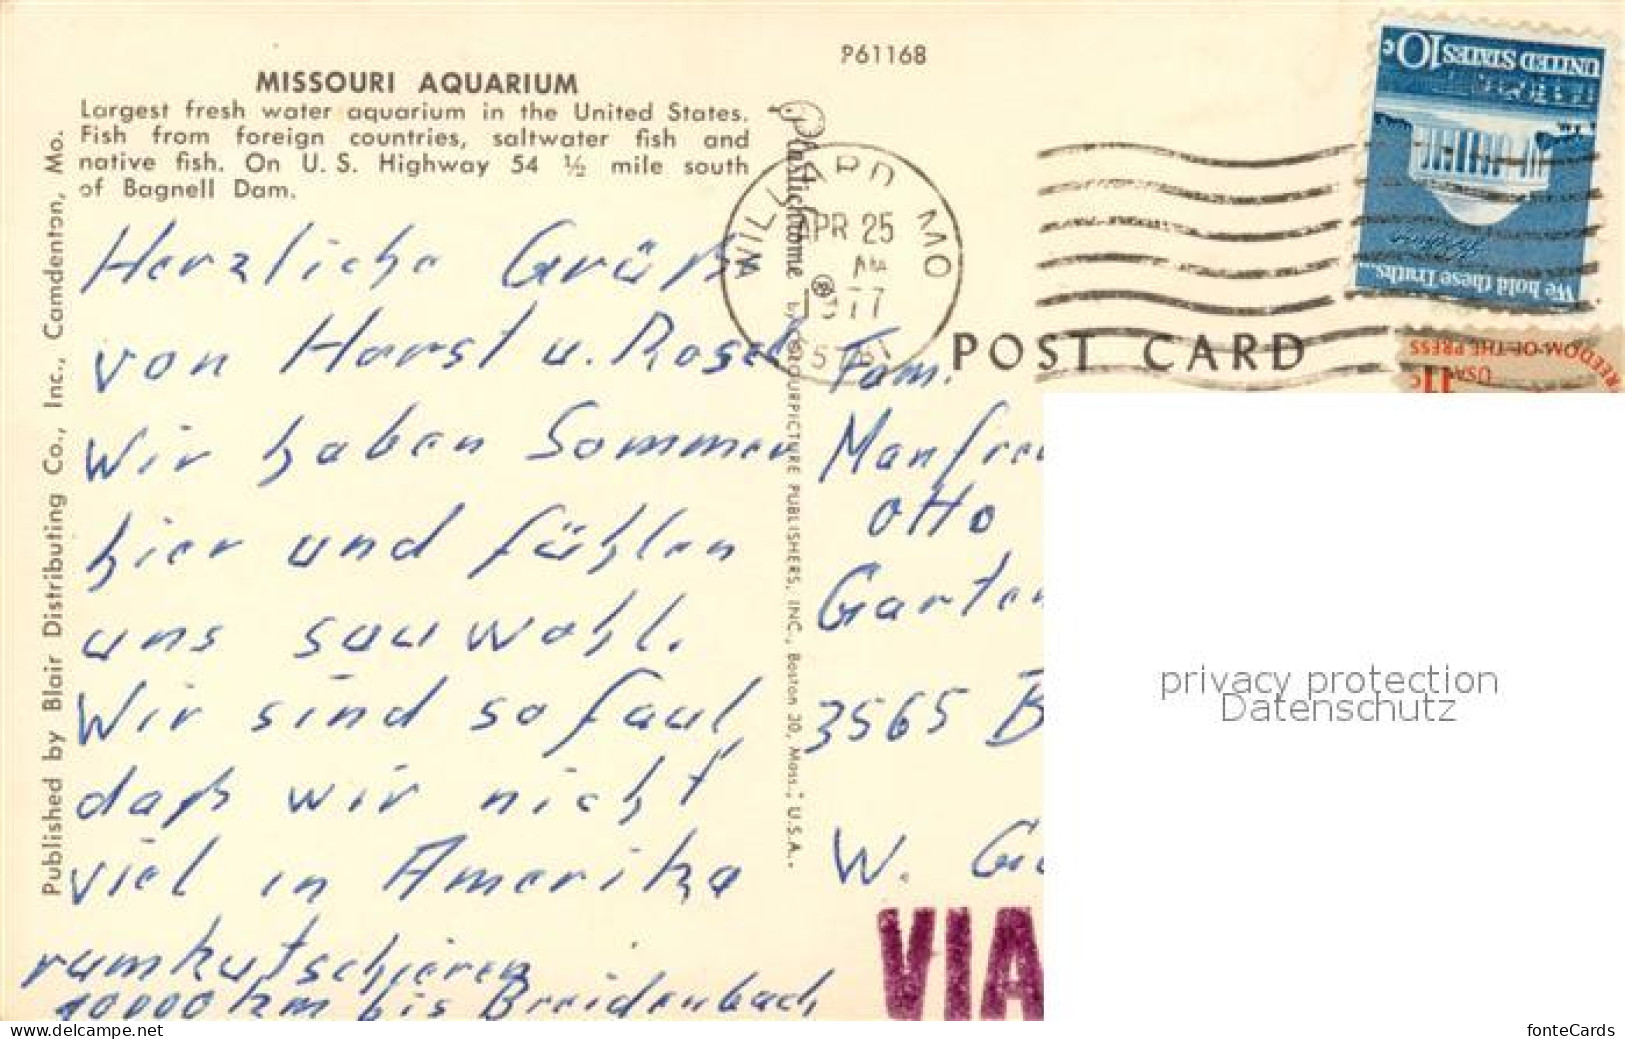 P61168
MISSOURI AQUARIUM
Largest fresh water aquarium in the United States.
Fish from foreign countries, saltwater fish and
native fish. On U. S. Highway 54 ½ mile south
of Bagnell Dam.
Published by Blair Distributing Co., Inc., Camdenton, Mo.
Plastichrome by COLOURPICTURE PUBLISHERS, INC., Boston 30, Mass., U.S.A.
WILLARD MO
APR 25
AM
1977
UNITED STATES 10c
We hold these Truths...
FREEDOM OF THE PRESS
USA 11c
POST CARD
Herzliche Grüß
von Horst u. Rosel
Wir haben Sommer
hier und fühlen
uns sauwohl.
Wir sind so faul,
daß wir nicht
viel in Amerika
rumkutschieren
10000 km bis Breidenbach
Fam.
Manfre
Otto
Garten
3565 B
W. Ge
VIA
privacy protection
Datenschutz
www.delcampe.net
fonteCards